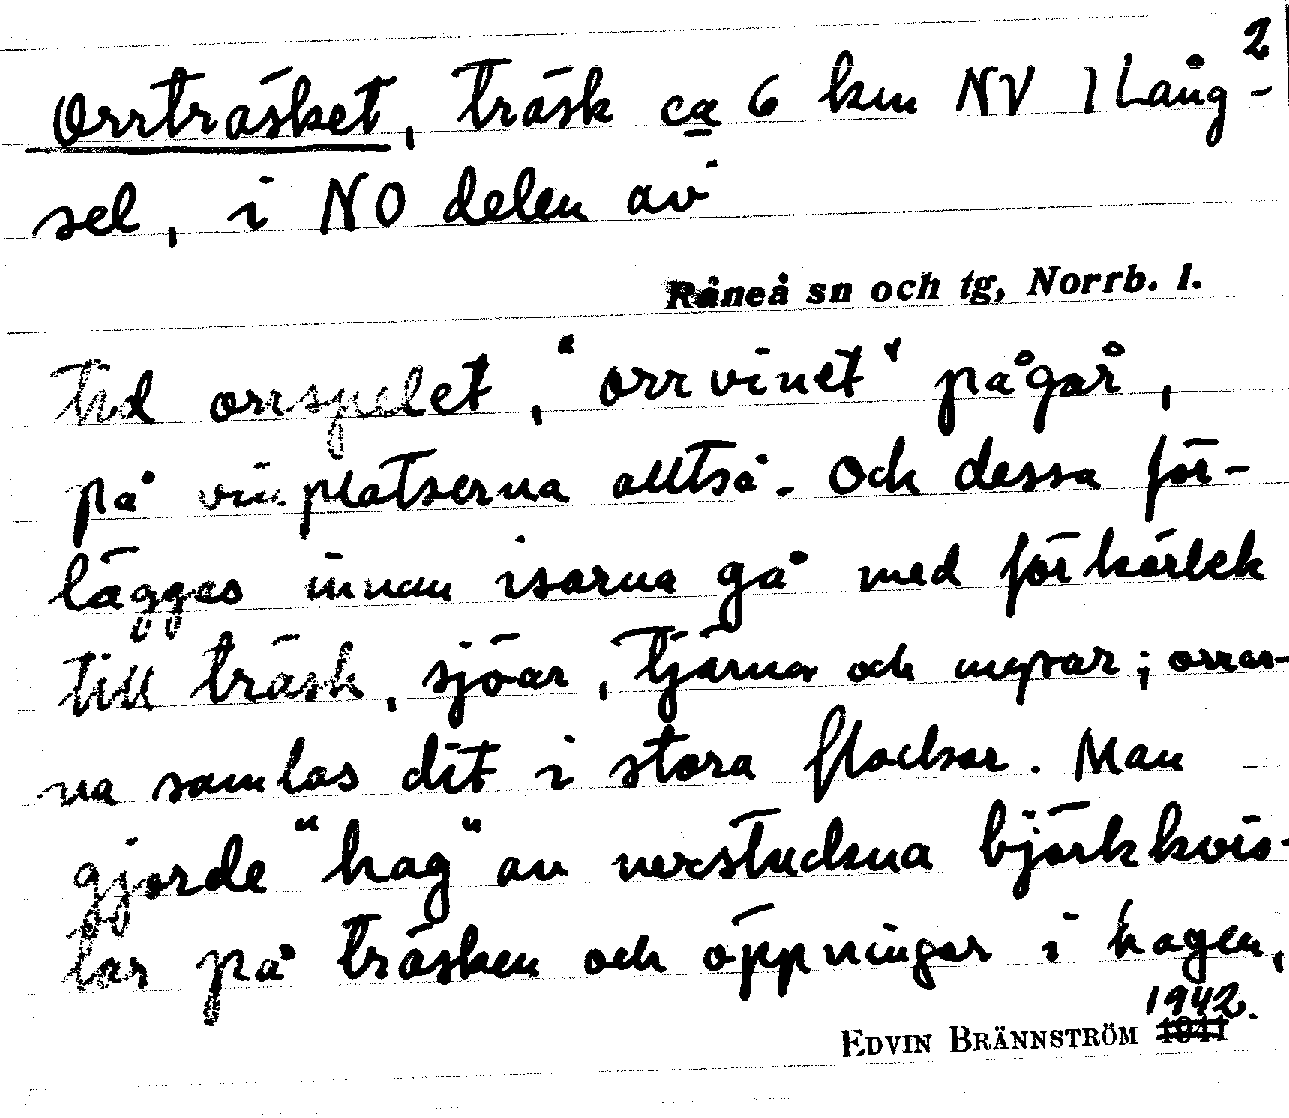 2
Orrträsket, träsk ca 6 km NV 1 Lång-
sel, i NO delen av
Råneå sn och tg, Norrb. l.
tid orrspelet, "orrvinet" pågår,
på vinplatserna alltså. Och dessa för-
lägges innan isarna gå med förkärlek
till träsk, sjöar, tjärnar och myrar; orrar-
na samlas dit i stora flockar. Man
gjorde "hag" av nerstuckna björkkvis-
tar på träsken och öppningar i hagen,
1942.
EDVIN BRÄNNSTRÖM 1941